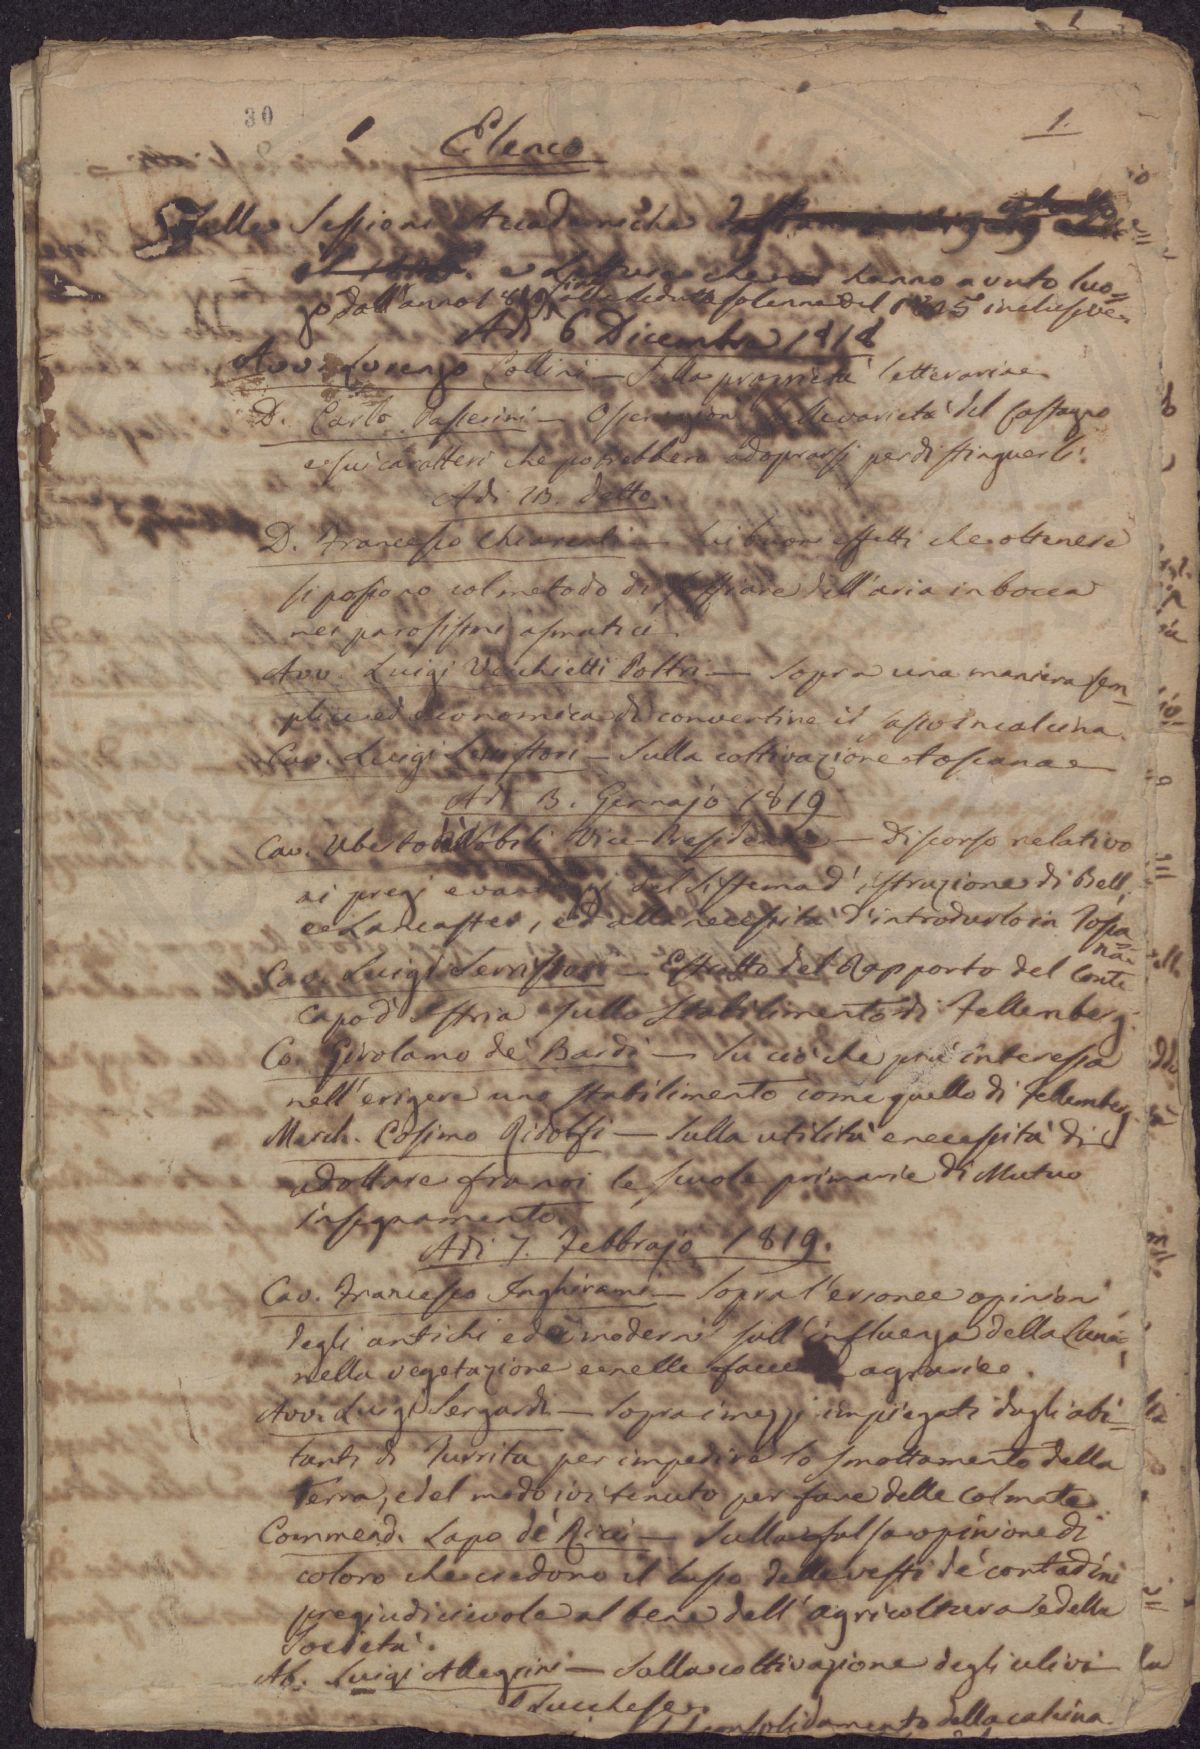 1
30
1.
Elenco
Delle Sessioni Accademiche
e Letture che hanno avuto luo=
go dall'anno 18 alla seduta solenne del 1825 inclusive.
Adì 6 Dicembre 1818
Avv. Lorenzo Collini — Sulla proprietà letteraria
D. Carlo Passerini — Osservazioni sulle varietà del Castagno
e sui caratteri che potrebbero adoprarsi per distinguerli.
Adì 13. detto
D. Francesco Chiarenti — Sui buoni effetti che ottenere
si possono col metodo di soffiare dell'aria in bocca
nei parosismi asmatici.
Avv. Luigi Vecchietti Poltri — Sopra una maniera sem=
plice ed economica di convertire il sasso in calcina.
Cav. Luigi Serristori — Sulla coltivazione toscana
Adì 3. Gennajo 1819
Cav. Uberto de' Nobili Vice-Presidente — Discorso relativo
ai pregi e vantaggi del Sistema d'istruzione di Bell
e Lancaster, ed alla necessità d'introdurlo in Tosca=
na.
Cav. Luigi Serristori — Estratto del Rapporto del Conte
Capo d'Istria sullo Stabilimento di Fellemberg.
Co. Girolamo de' Bardi — Su ciò che più interessa
nell'erigere uno stabilimento come quello di Fellemberg.
March. Cosimo Ridolfi — Sulla utilità e necessità di
adottare fra noi le scuole primarie di Mutuo
insegnamento.
Adì 7. Febbrajo 1819.
Cav. Francesco Inghirami — Sopra l'erronee opinioni
degli antichi ed e' moderni sull'influenza della Luna
nella vegetazione e nelle faccende agrarie.
Avv. Luigi Sergardi — Sopra i mezzi impiegati dagli abi=
tanti di Turrita per impedire lo smottamento della
Terra, e del modo ivi tenuto per fare delle Colmate.
Commend. Lapo de' Ricci — Sulla falsa opinione di
coloro che credono il lusso delle vesti de' contadini
pregiudicievole al bene dell'agricoltura e della
Società.
Ab. Luigi Allegrini — Sulla coltivazione degli ulivi
Lucchese.
consolidamento della calcina